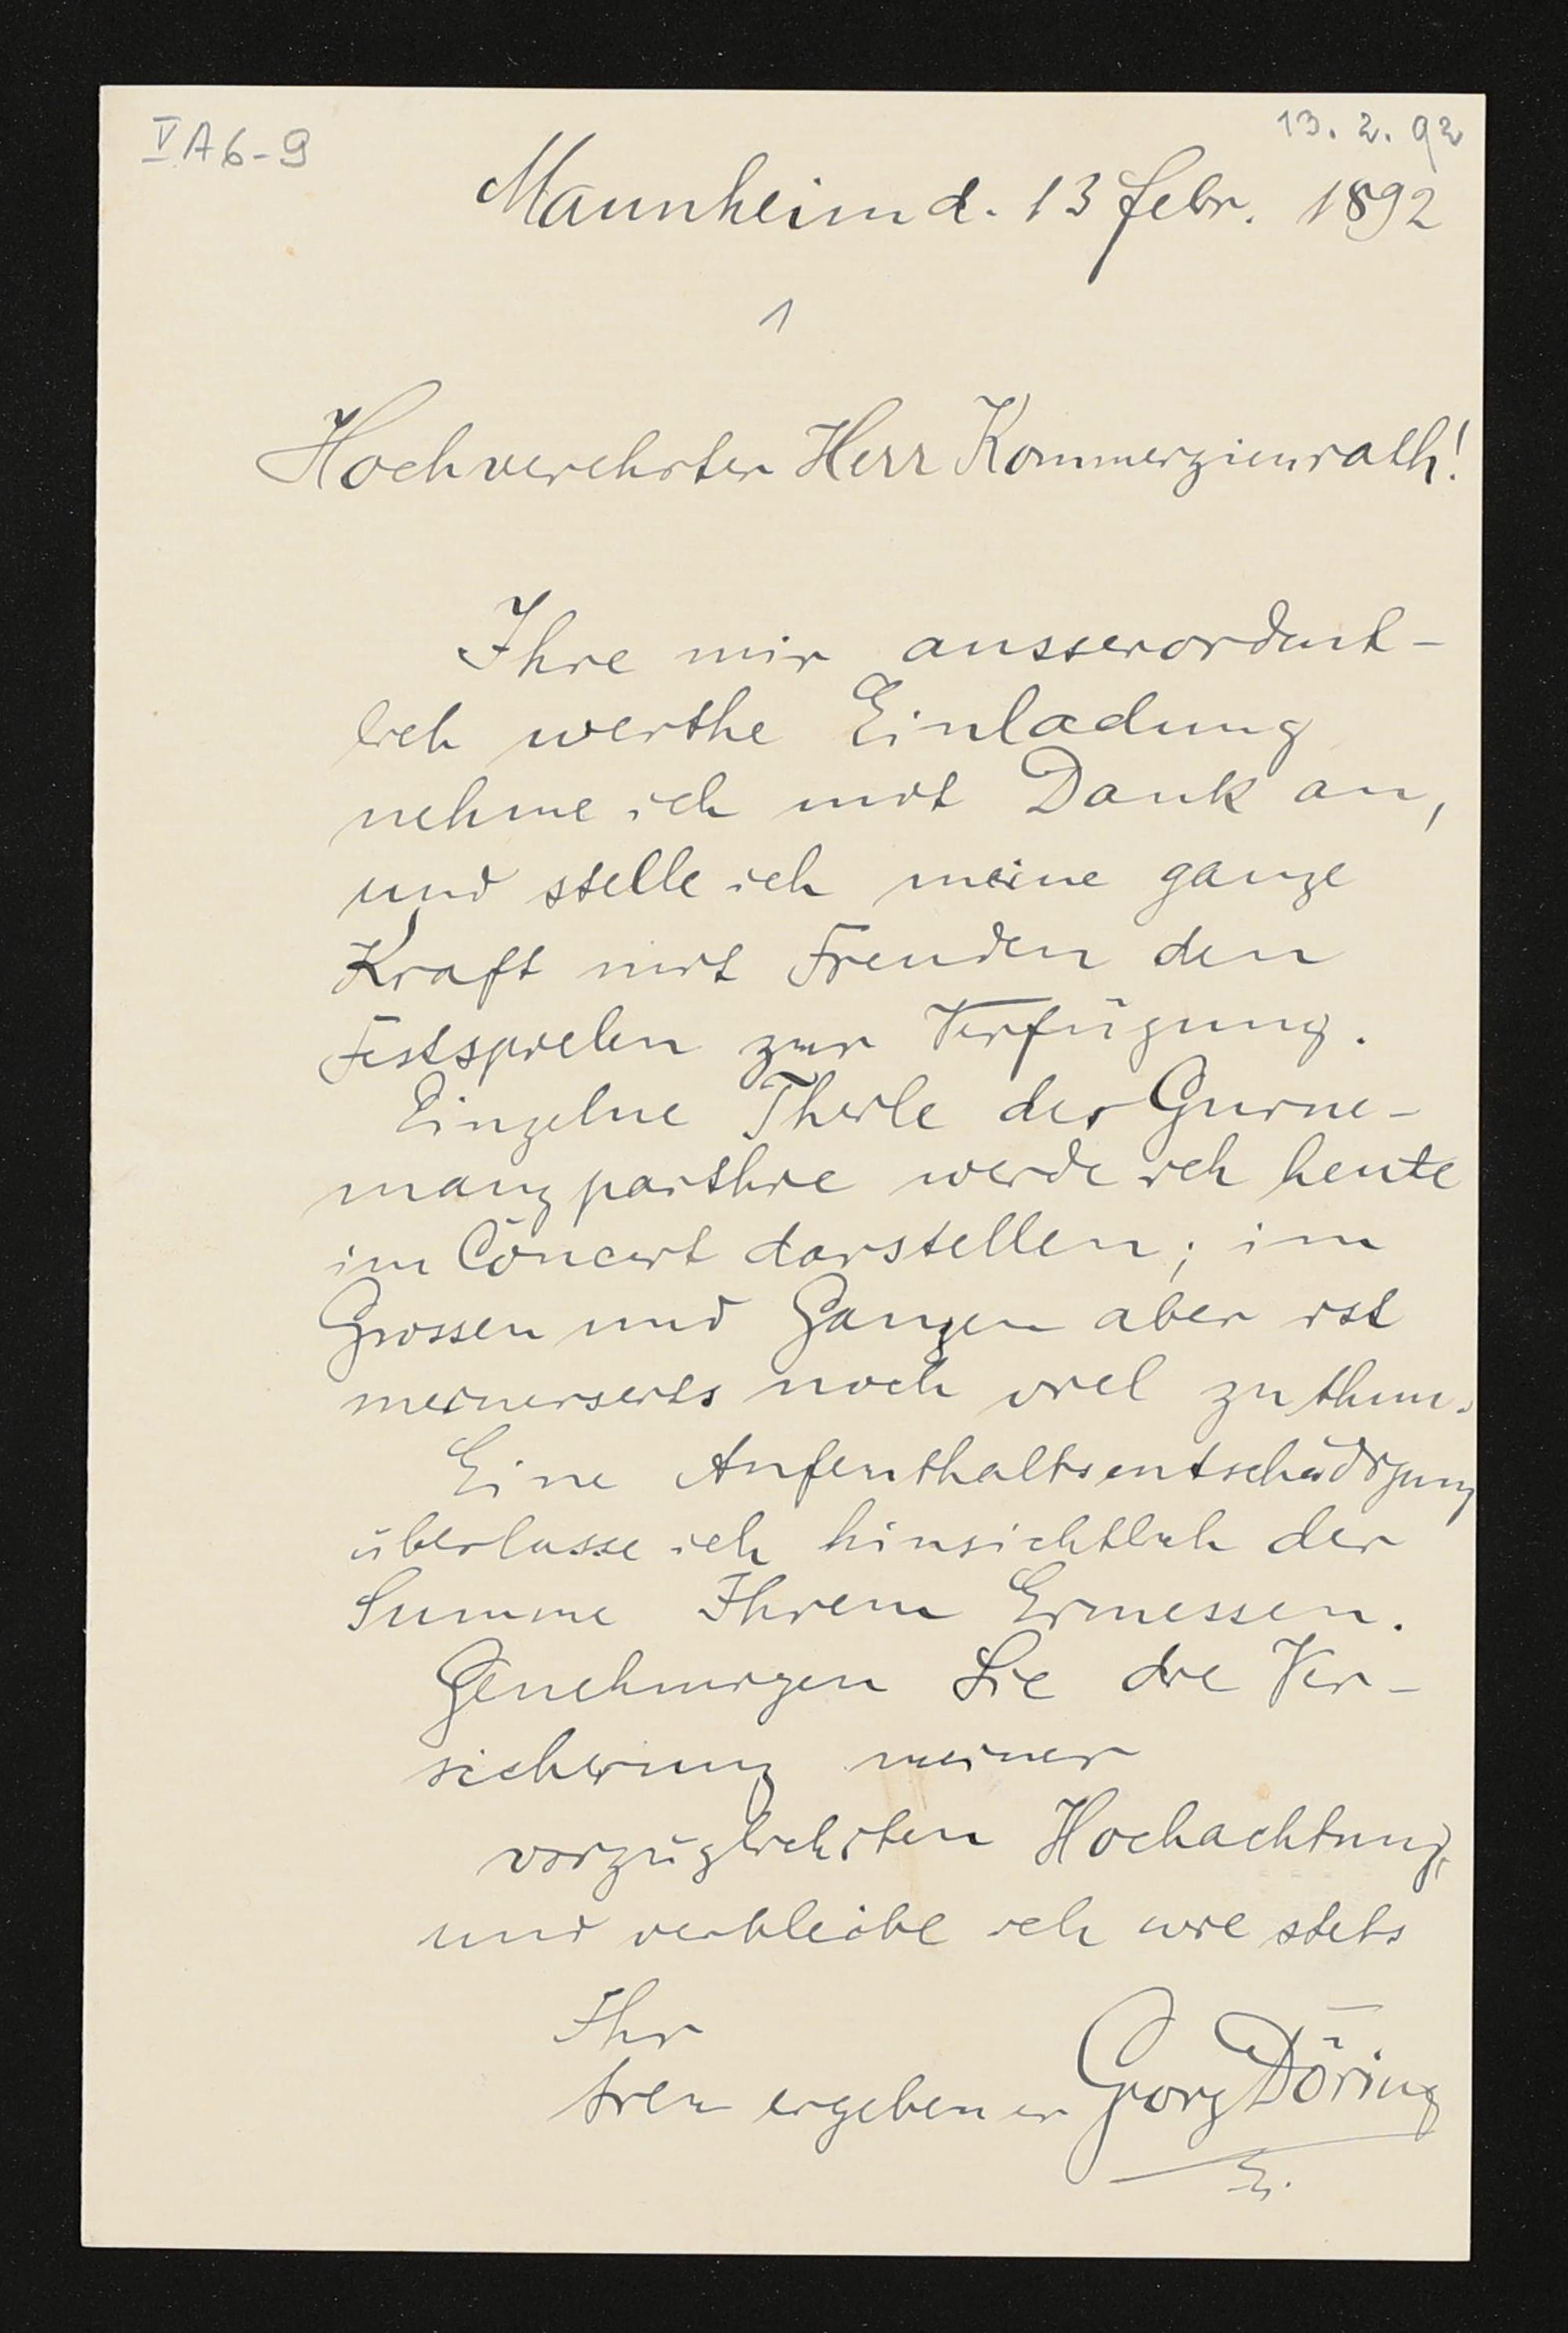 V A 6-9
13. 2. 92
Mannheim d. 13 Febr. 1892
1
Hochverehrter Herr Kommerzienrath!
Ihre mir ausserordent-
lich werthe Einladung
nehme ich mit Dank an,
und stelle ich meine ganze
Kraft mit Freuden den
Festspielen zur Verfügung.
Einzelne Theile der Gurne-
manzparthie werde ich heute
im Concert darstellen; im
Grossen und Ganzen aber ist
meinerseits noch viel zu thun.
Eine Aufenthaltsentschädigung
überlasse ich hinsichtlich der
Summe Ihrem Ermessen.
Genehmigen Sie die Ver-
sicherung meiner
vorzüglichsten Hochachtung,
und verbleibe ich wie stets
Ihr
treu ergebener Georg Döring